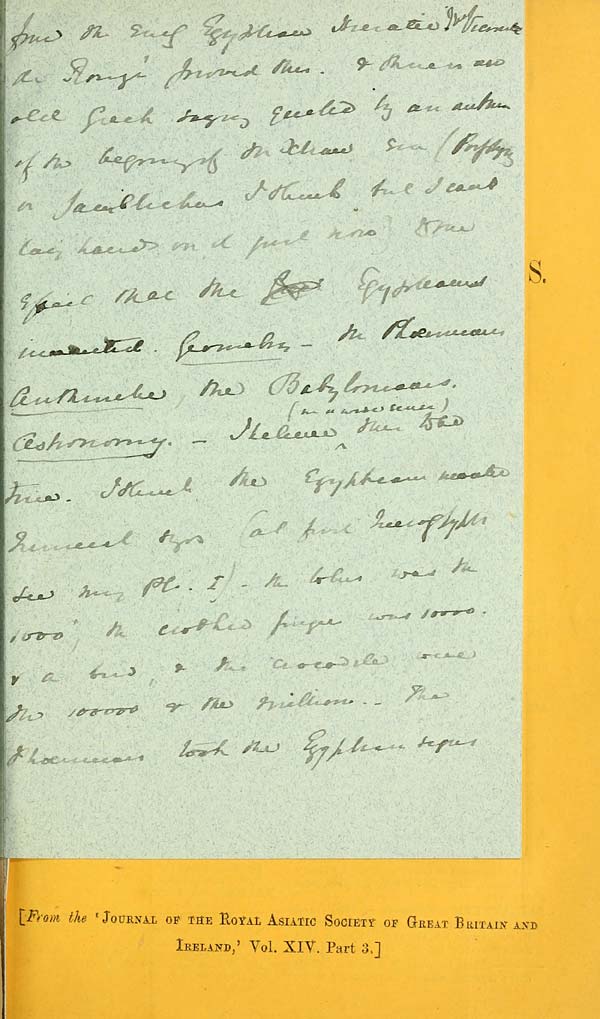 from the early Egyptian Hieratic. Vicomte
de Rougé proved this. & there is an
old Greek saying quoted by an author
of the beginning of the Xtian era (Porphyry
or Jamblichus I think but I cant
lay hands on it just now)
that the Egyptians
invented Geometry - the Phoenicians
Arithmetic, the Babylonians.
(in a wide sense)
Astronomy. - I believe this to be
true. I think the Egyptians invented
numeral signs (at first hieroglyphs
see my Pl. I) - the lotus was the
1000, the crooked finger was 10000.
& a bird, & the crocodile were
the 100000 & the million. - The
Phoenicians took the Egyptian signs
S.
[From the 'JOURNAL OF THE ROYAL ASIATIC SOCIETY OF GREAT BRITAIN AND
IRELAND,' Vol. XIV. Part 3.]